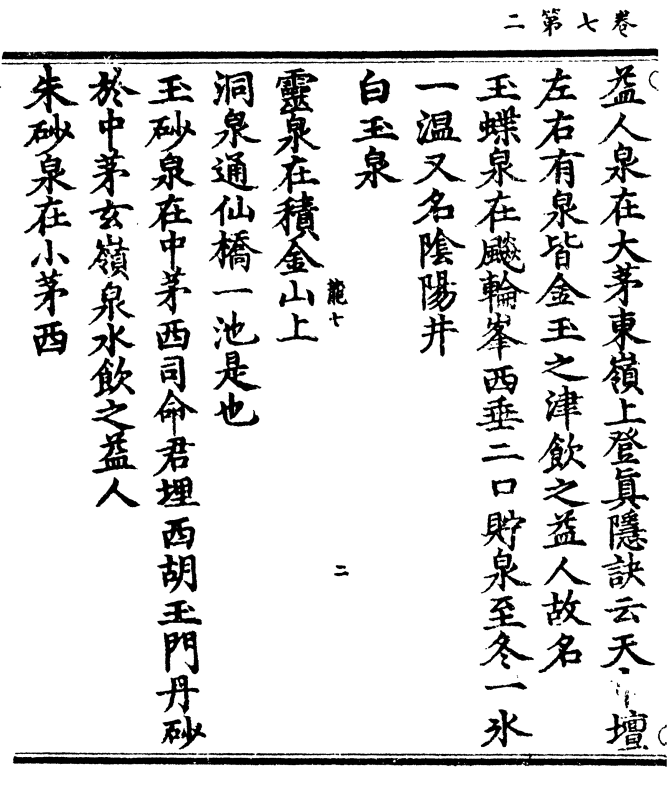 卷七第二
益人泉在大茅東嶺上登真隱訣云天市壇
左右有泉皆金玉之津飲之益人故名
玉蝶泉在飈輪峯西垂二口貯泉至冬一氷
一温又名陰陽井
白玉泉
龍七
二
靈泉在積金山上
洞泉通仙橋一池是也
玉砂泉在中茅西司命君埋西胡玉門丹砂
於中茅玄嶺泉水飲之益人
朱砂泉在小茅西